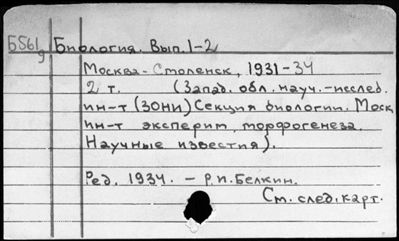 Б561g Биология. Вып. 1-2
Москва - Смоленск, 1931-34
2 т. (Запад. обл. науч.-исслед.
ин-т (ЗОНИ) Секция биологии. Моск.
ин-т эксперим. морфогенеза.
Научные известия).
Ред. 1934. - Р.И. Белкин.
См. след. карт.